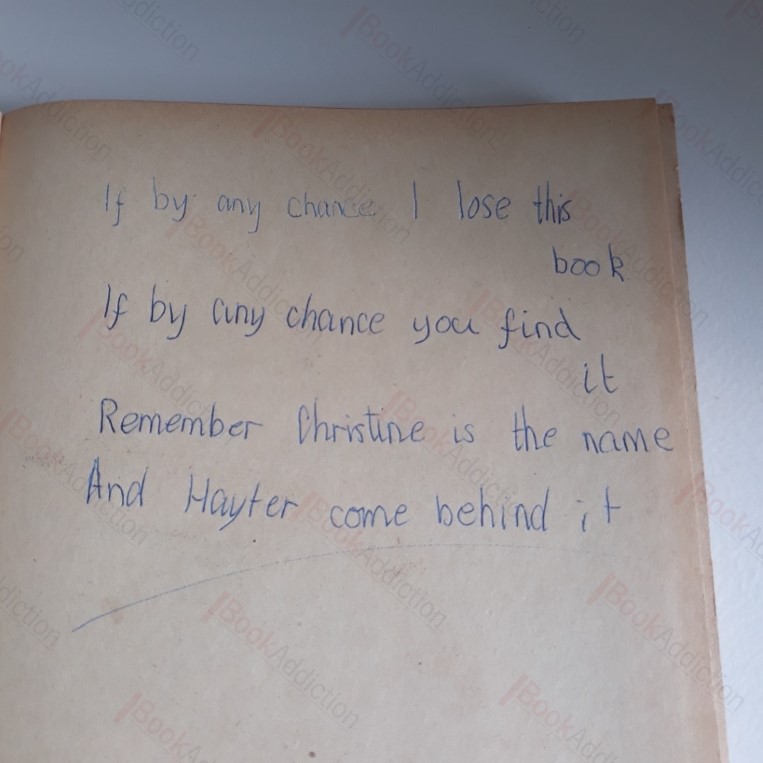 If by any chance I lose this
book
If by any chance you find
it
Remember Christine is the name
And Hayter come behind it